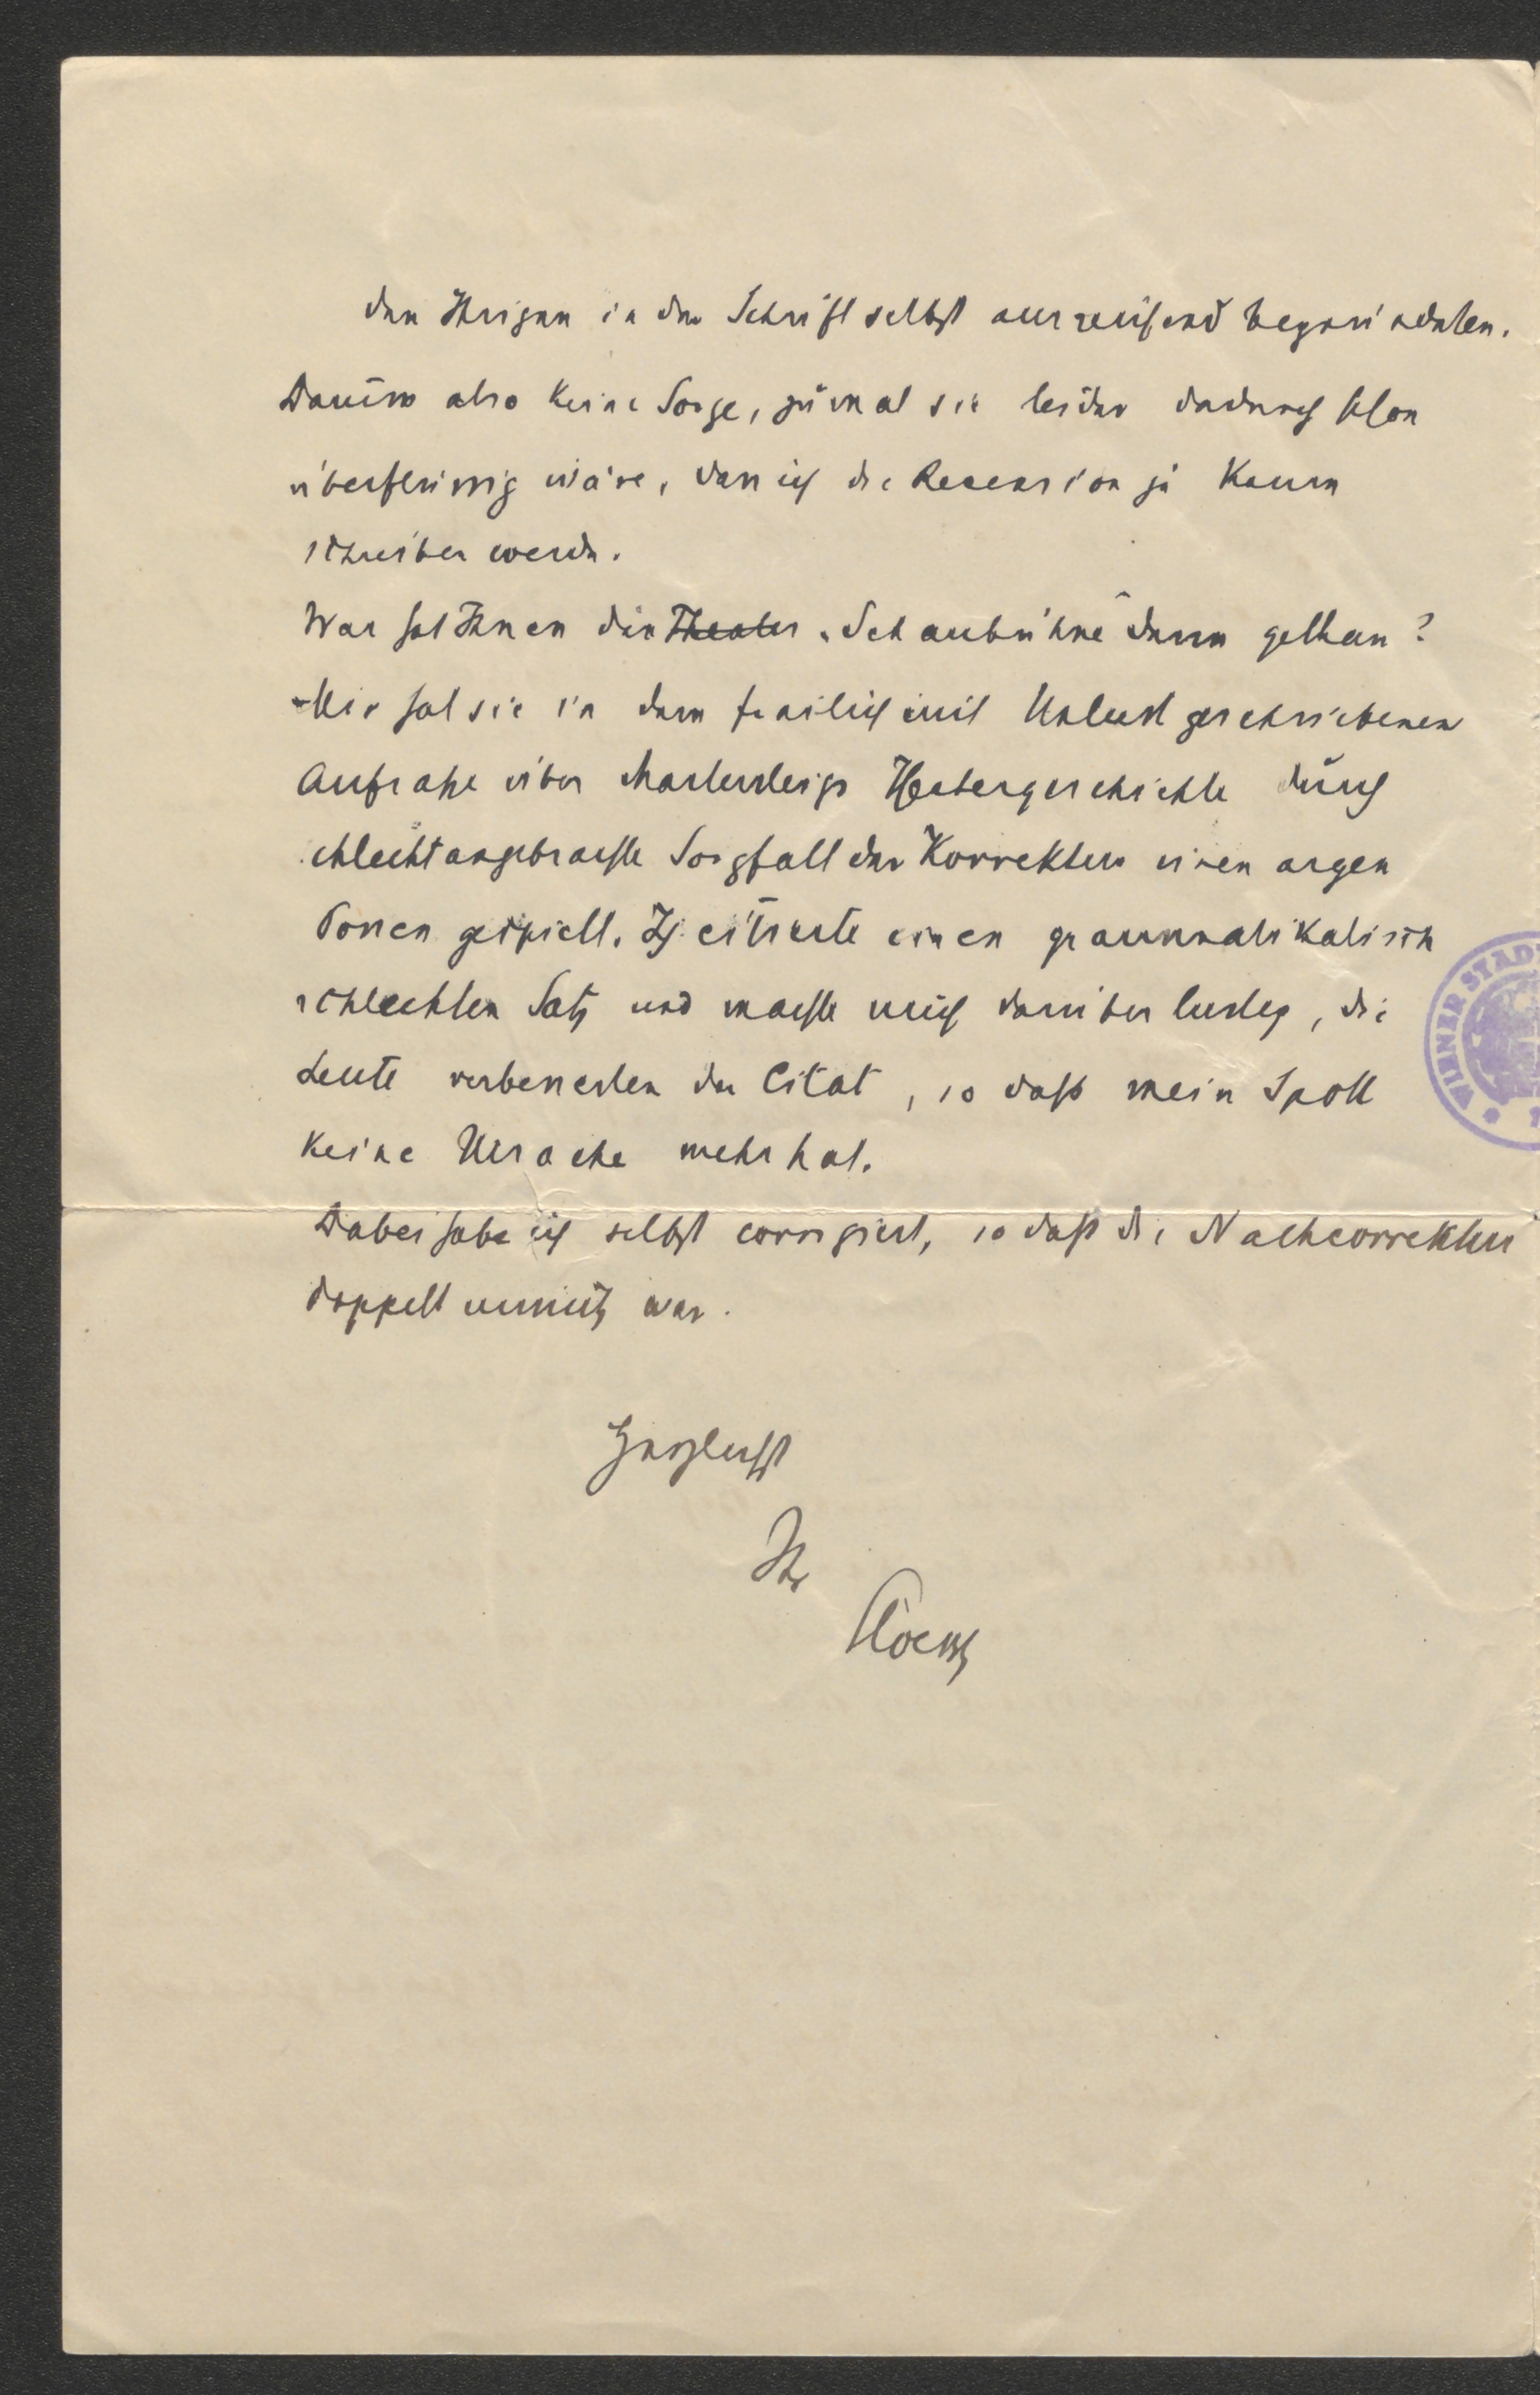 dem Ihrigen in der Schrift selbst ausreichend begründeten.
Darum also keine Sorge, zumal sie leider dadurch schon
überflüssig wäre, dass ich die Recension ja kaum
schreiben werde.
Was hat Ihnen die Theater „Schaubühne" denn gethan?
Mir hat sie in dem freilich mit Unlust geschriebenen
Aufsatze über Martersteigs Theatergeschichte durch
schlecht angebrachte Sorgfalt der Korrektur einen argen
Possen gespielt. Ich citierte einen grammatikalisch
schlechten Satz und machte mich darüber lustig, die
Leute verbesserten das Citat, so daß mein Spott
keine Ursache mehr hat.
Dabei habe ich selbst corrigiert, so daß die Nachcorrektur
doppelt unnütz war.
Herzlichst
Ihr
Stoessl
WIENER STAD